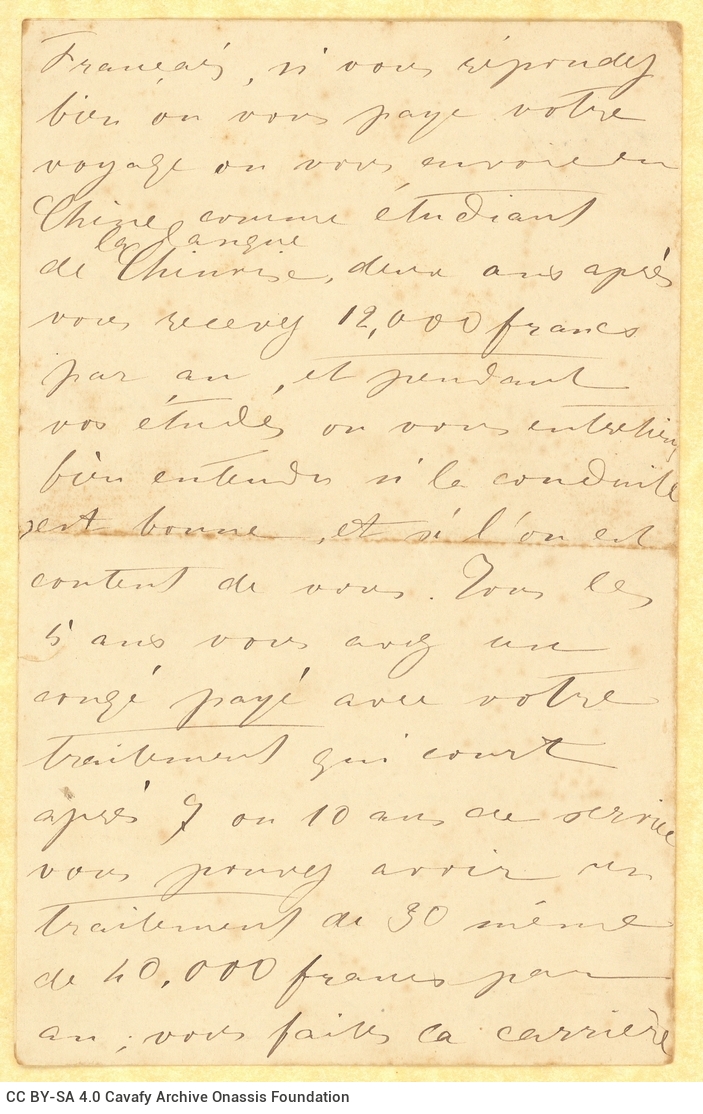 Français, si vous répondez
bien on vous paye votre
voyage on vous envoie en
Chine comme étudiant
la langue
de Chinoise, deux ans après
vous recevez 12,000 francs
par an, et pendant
vos études on vous entretien
bien entendu si la conduite
est bonne, et si l'on est
content de vous. Tous les
5 ans vous avez un
congé payé avec votre
traitement qui court
après 7 ou 10 ans de service
vous pouvez avoir un
traitement de 30 même
de 40,000 francs par
an; vous faites la carrière
CC BY-SA 4.0 Cavafy Archive Onassis Foundation